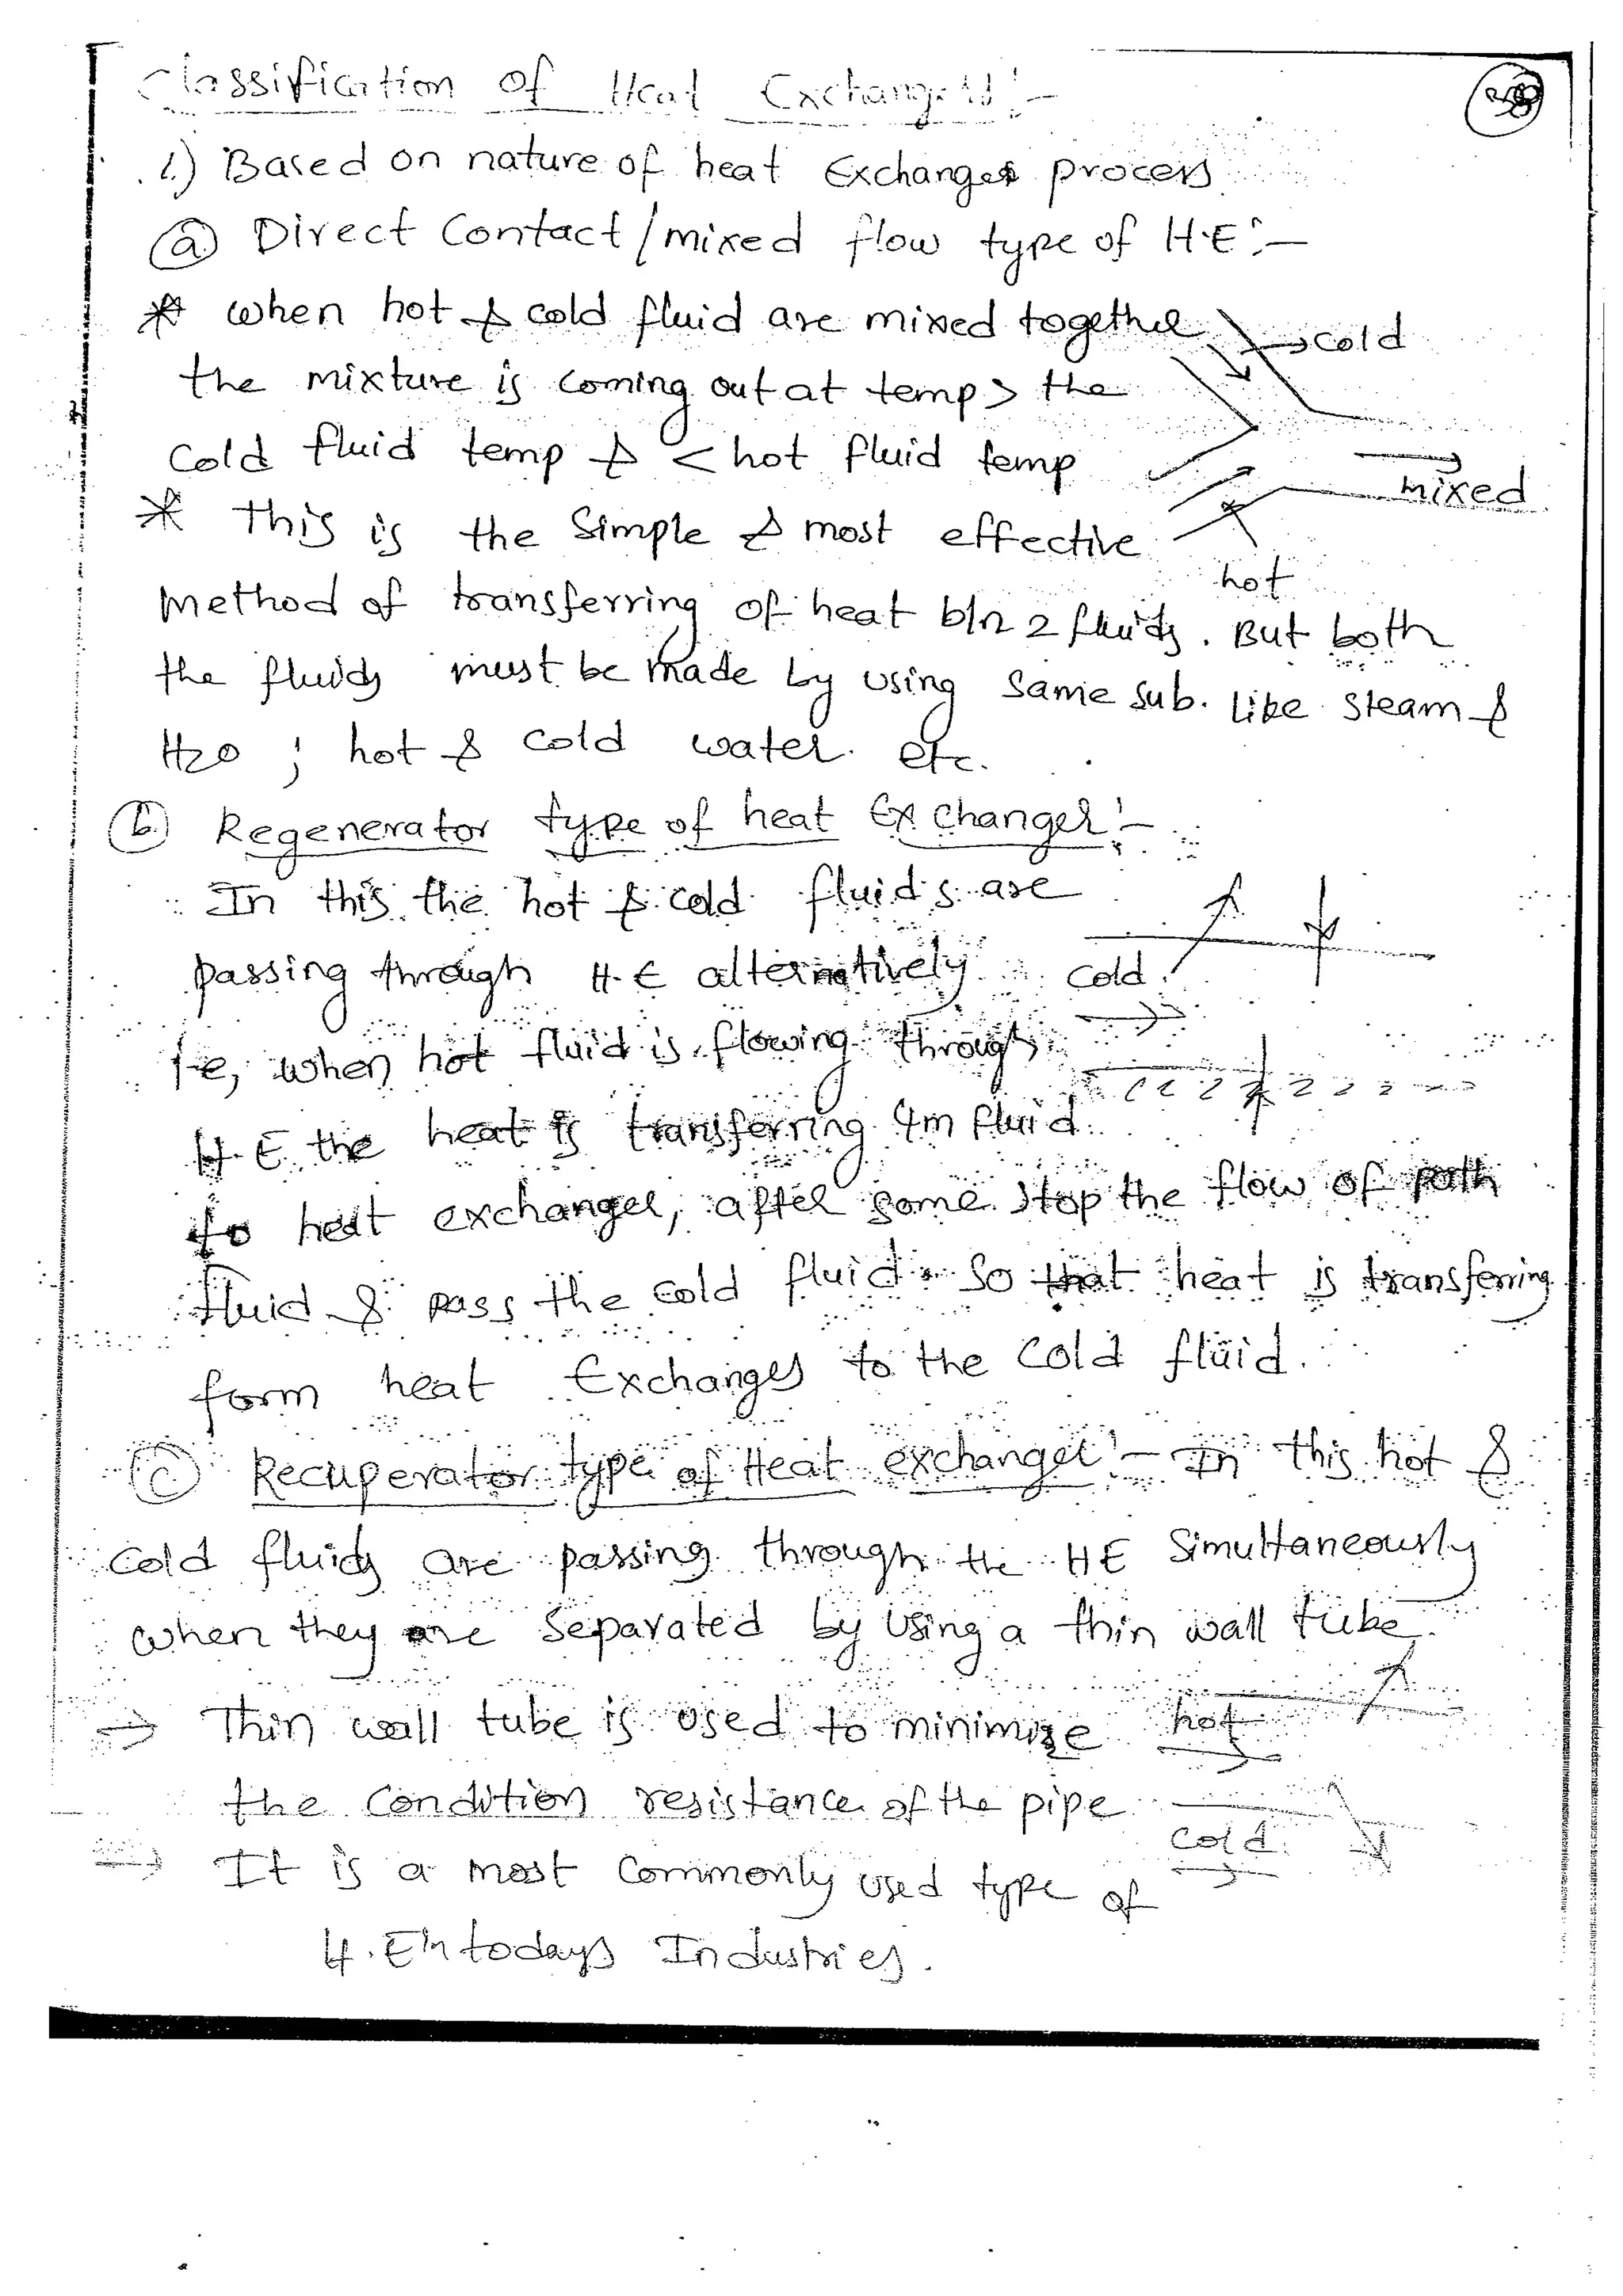 Classification of Heat Exchangers :-
1.) Based on nature of heat Exchanges process
(a) Direct Contact/mixed flow type of H.E :-
* when hot & cold fluid are mixed together
→ cold
the mixture is coming out at temp > the
cold fluid temp & < hot fluid temp
mixed
* This is the simple & most effective
hot
method of transferring of heat b/n 2 fluids. But both
the fluids must be made by using same sub. like steam &
H2O ; hot & cold water. etc.
(b) Regenerator type of heat Exchanger :-
In this the hot & cold fluids are
passing through H.E alternatively
cold
ie, when hot fluid is flowing through
H.E the heat is transferring 4m fluid
to heat exchanger, after some stop the flow of
fluid & pass the cold fluid. So that heat is transferring
form heat Exchanges to the cold fluid.
(c) Recuperator type of Heat exchanger :- In this hot &
cold fluids are passing through the HE Simultaneously
when they are separated by using a thin wall tube.
⇒ Thin wall tube is used to minimize
hot
the condition resistance of the pipe
cold
⇒ It is a most commonly used type of
H.E in todays Industries.